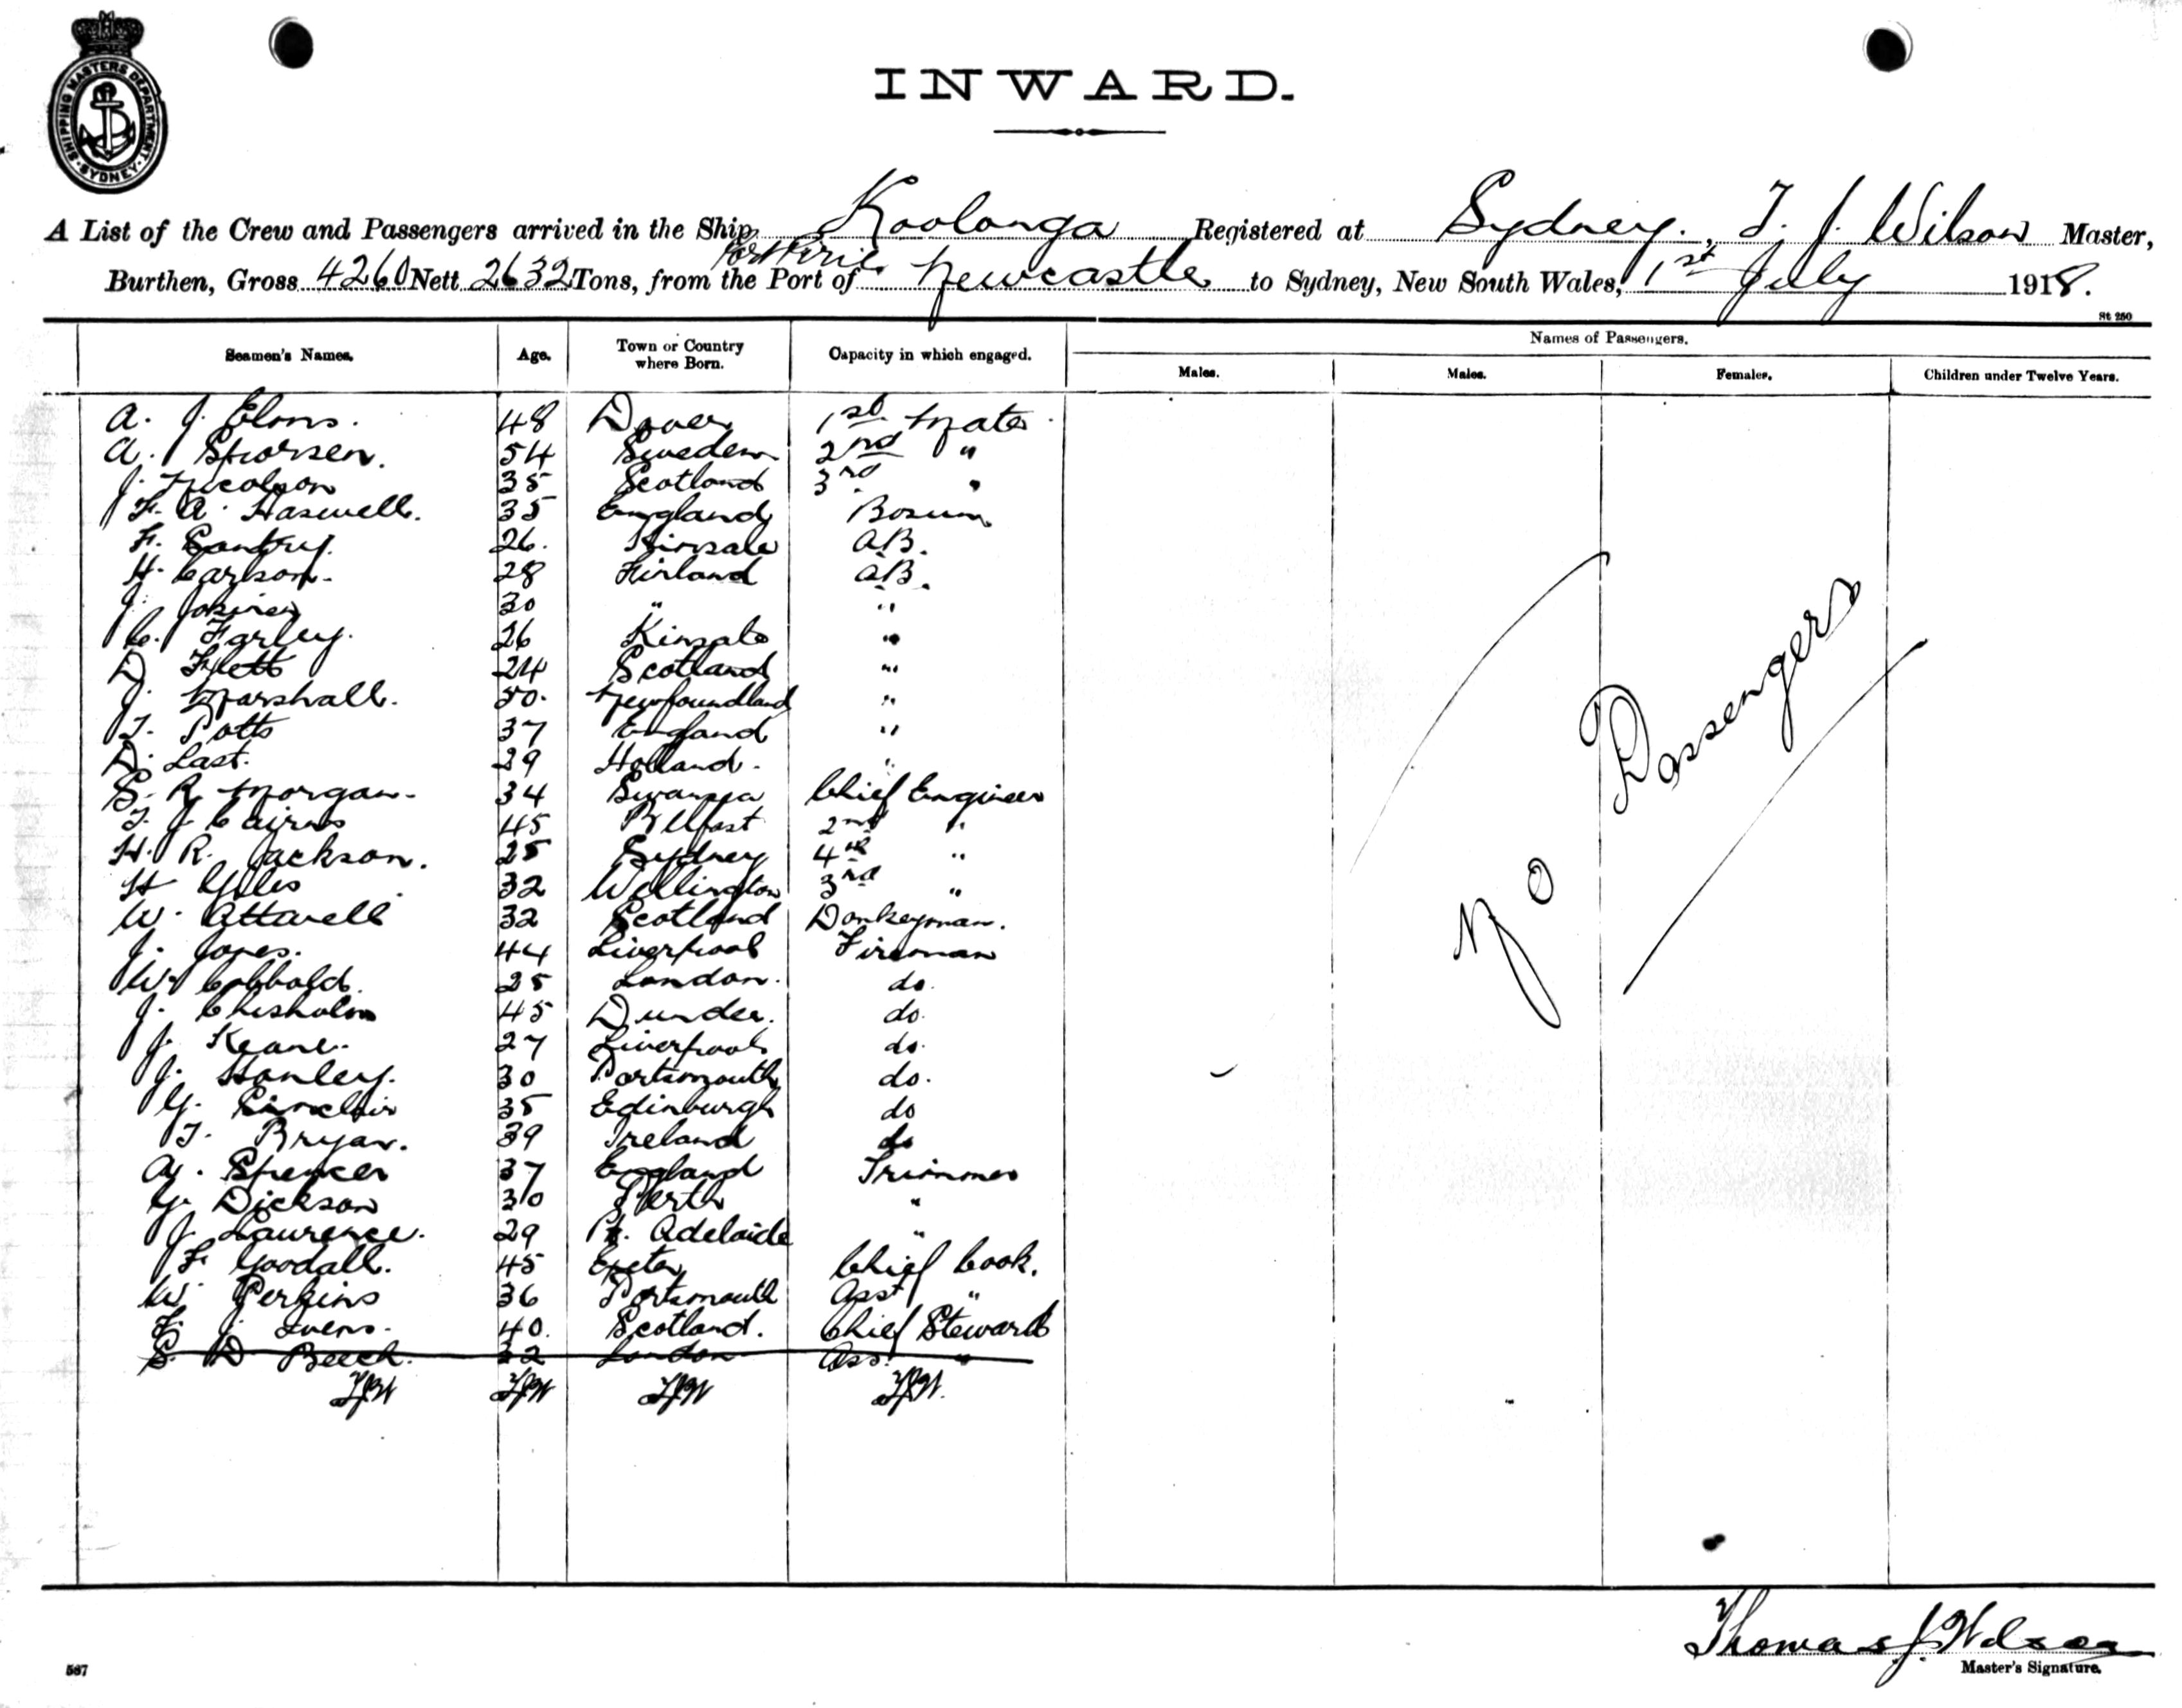 SHIPPING MASTERS DEPARTMENT SYDNEY
INWARD.
A List of the Crew and Passengers arrived in the Ship Koolonga Registered at Sydney, T. J. Wilson Master,
Port Pirie
Burthen, Gross 4260 Nett 2632 Tons, from the Port of Newcastle to Sydney, New South Wales, 1st July 1918.
St 250
Seamen's Names. Age. Town or Country where Born. Capacity in which engaged. Names of Passengers.
Males. Males. Females. Children under Twelve Years.
A. J. Elms. 48 Dover 1st Mate
A. 54 Sweden 2nd "
J. Nicolson 35 Scotland 3rd "
F. A. Haswell. 35 England Bosun
F. Santry. 26. Kinsale AB.
H. Carlson. 28 Finland AB.
J. 30 " "
C. Farley. 26 Kinsale "
D Flett 24 Scotland "
J. Marshall. 50. Newfoundland "
T. Potts 37 England "
D. Last. 29 Holland. "
S. R. Morgan. 34 Swansea Chief Engineer
T. J. Cairns 45 Belfast 2nd "
H. R. Jackson. 25 Sydney 4th "
H Giles 32 Wellington 3rd "
W. Attwell 32 Scotland Donkeyman.
J. Jones. 44 Liverpool Fireman
W. Cobbold. 25 London. do.
J. Chisholm 45 Dundee. do.
J. Keane. 27 Liverpool. do.
J. Hanley. 30 Portsmouth do.
G. Sinclair 35 Edinburgh do
T. Bryan. 39 Ireland do
A. Spencer 37 England Trimmer
G. Dickson 30 Perth "
J. Laurence. 29 Pt. Adelaide "
F. Goodall. 45 Exeter Chief Cook.
W. Perkins 36 Portsmouth Asst "
F. J. Ivens. 40. Scotland. Chief Steward
S. D Beech. 32 London Ass. "
TJW TJW TJW TJW.
No Passengers
Thomas J. Wilson
Master's Signature.
587